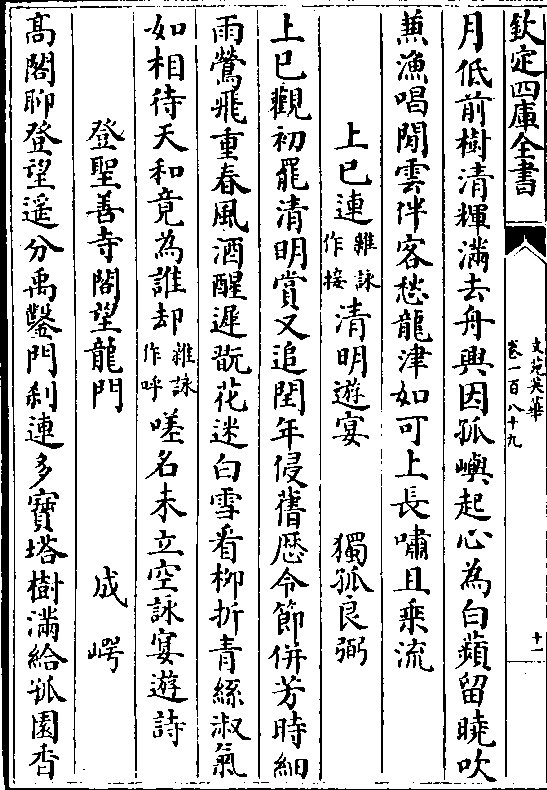 欽定四庫全書
文苑英華
卷一百八十九
十一
月低前樹清輝滿去舟興因孤嶼起心為白蘋留曉吹
蕪漁唱閒雲伴客愁龍津如可上長嘯且乘流
上已連雜詠作接清明遊宴 獨孤良弼
上已觀初罷清明賞又追閏年侵舊厯令節併芳時細
雨鶯飛重春風酒醒遲翫花迷白雪看柳折青絲淑氣
如相待天和竟為誰却雜詠作呼嗟名未立空詠宴遊詩
登聖善寺閣望龍門 成㟧
髙閣聊登望遥分禹鑿門刹連多寶塔樹滿給孤園香